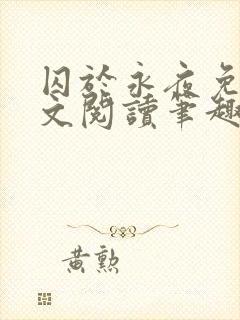 囚於永夜免
文閱讀筆趣
黃勲